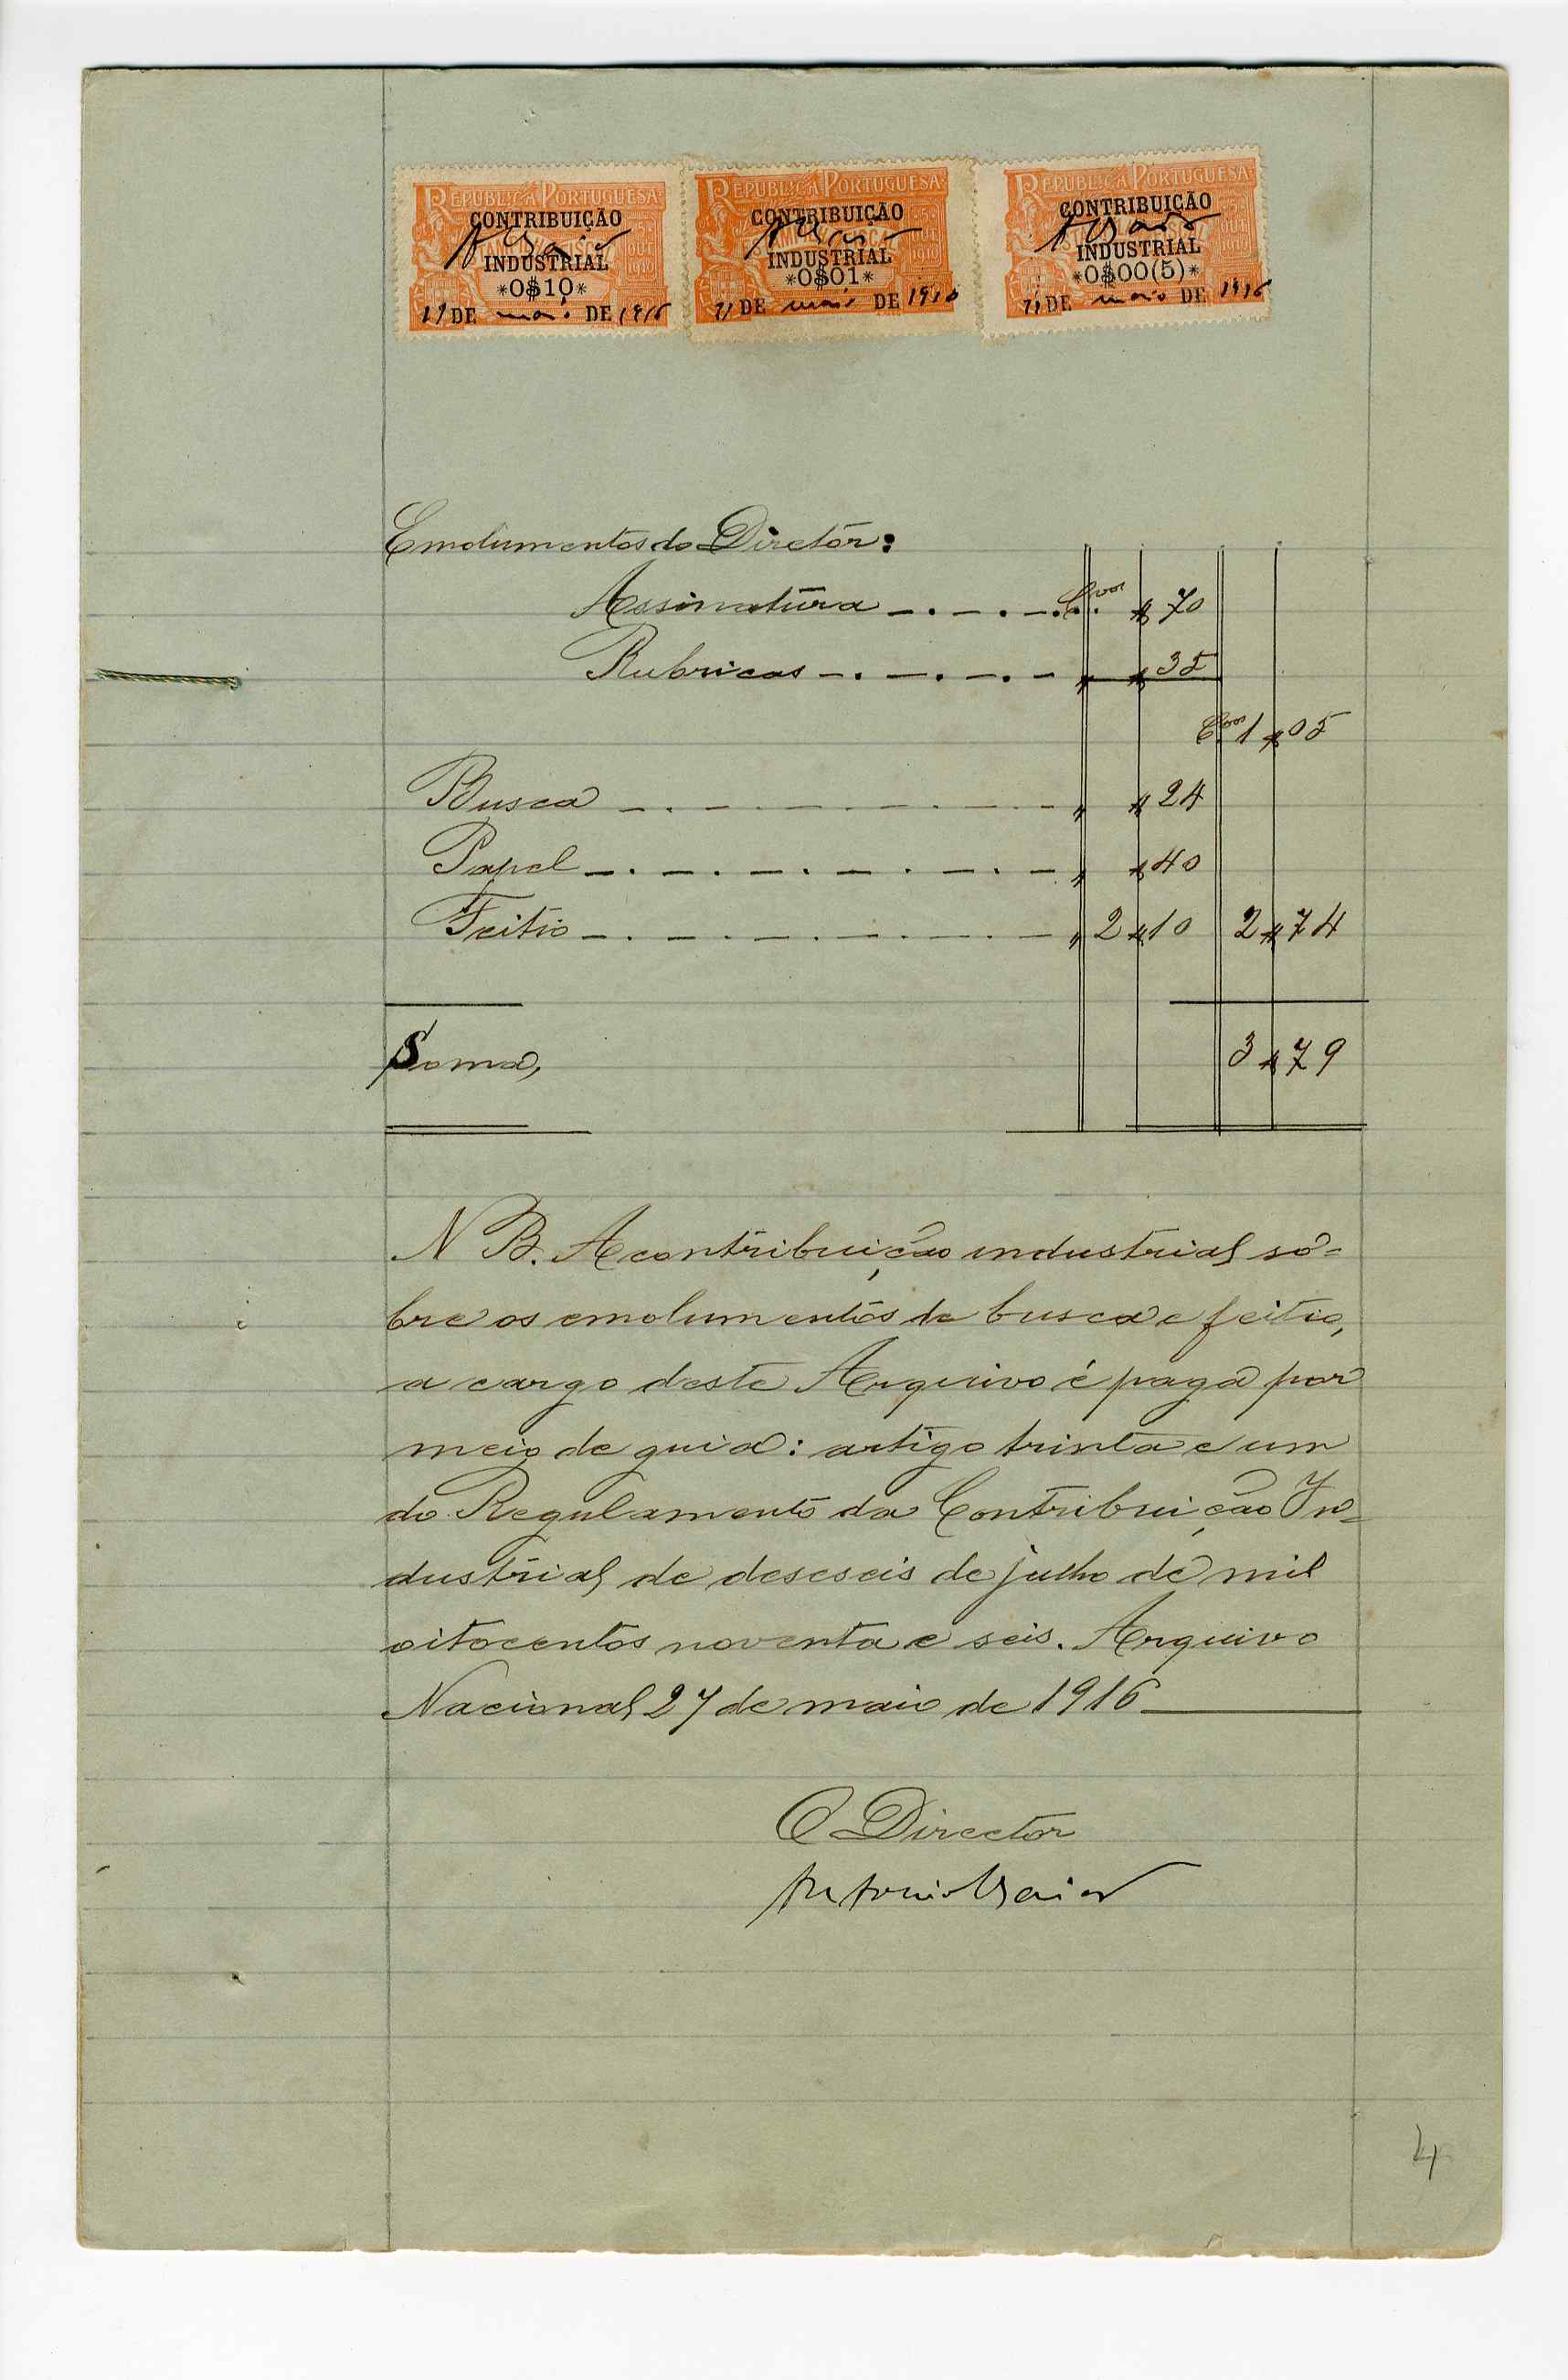 REPUBLICA PORTUGUESA
CONTRIBUIÇÃO
INDUSTRIAL
*0$10*
DE maio DE 1916
REPUBLICA PORTUGUESA
CONTRIBUIÇÃO
INDUSTRIAL
*0$01*
DE maio DE 1916
REPUBLICA PORTUGUESA
CONTRIBUIÇÃO
INDUSTRIAL
*0$00(5)*
DE maio DE 1916
Emolumentos do Diretór:
Assinatura —.—.—. $70
Rubricas —.—.—.— $35
1$05
Busca —.—.—.—.—.— $24
Papel —.—.—.—.—.— $40
Feitio —.—.—.—.—.— 2$10 2$74
Soma, 3$79
N B. A contribuição industrial sô=
bre os emolumentos de busca e feitio,
a cargo deste Arquivo é paga por
meio de guia: artigo trinta e um
do Regulamento da Contribuição In=
dustrial de deseseis de julho de mil
oitocentos noventa e seis. Arquivo
Nacional, 27 de maio de 1916
O Director
Antonio Baião
4